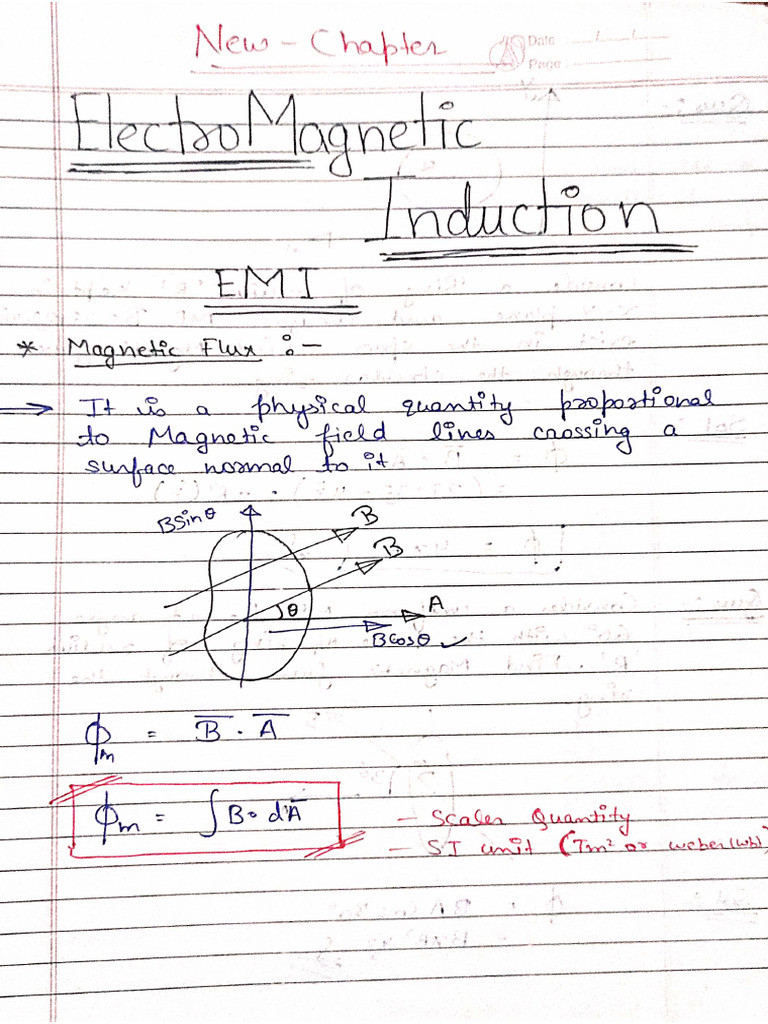 New - Chapter
Date
Page
ElectroMagnetic
Induction
EMI
* Magnetic Flux :-
→ It is a physical quantity proportional
to Magnetic field lines crossing a
surface normal to it
Bsinθ
B
B
θ
A
Bcosθ ✓
ϕm = B̅ . A̅
ϕm = ∫ B • dA̅
- Scaler Quantity
- SI unit (Tm² or weber(wb)